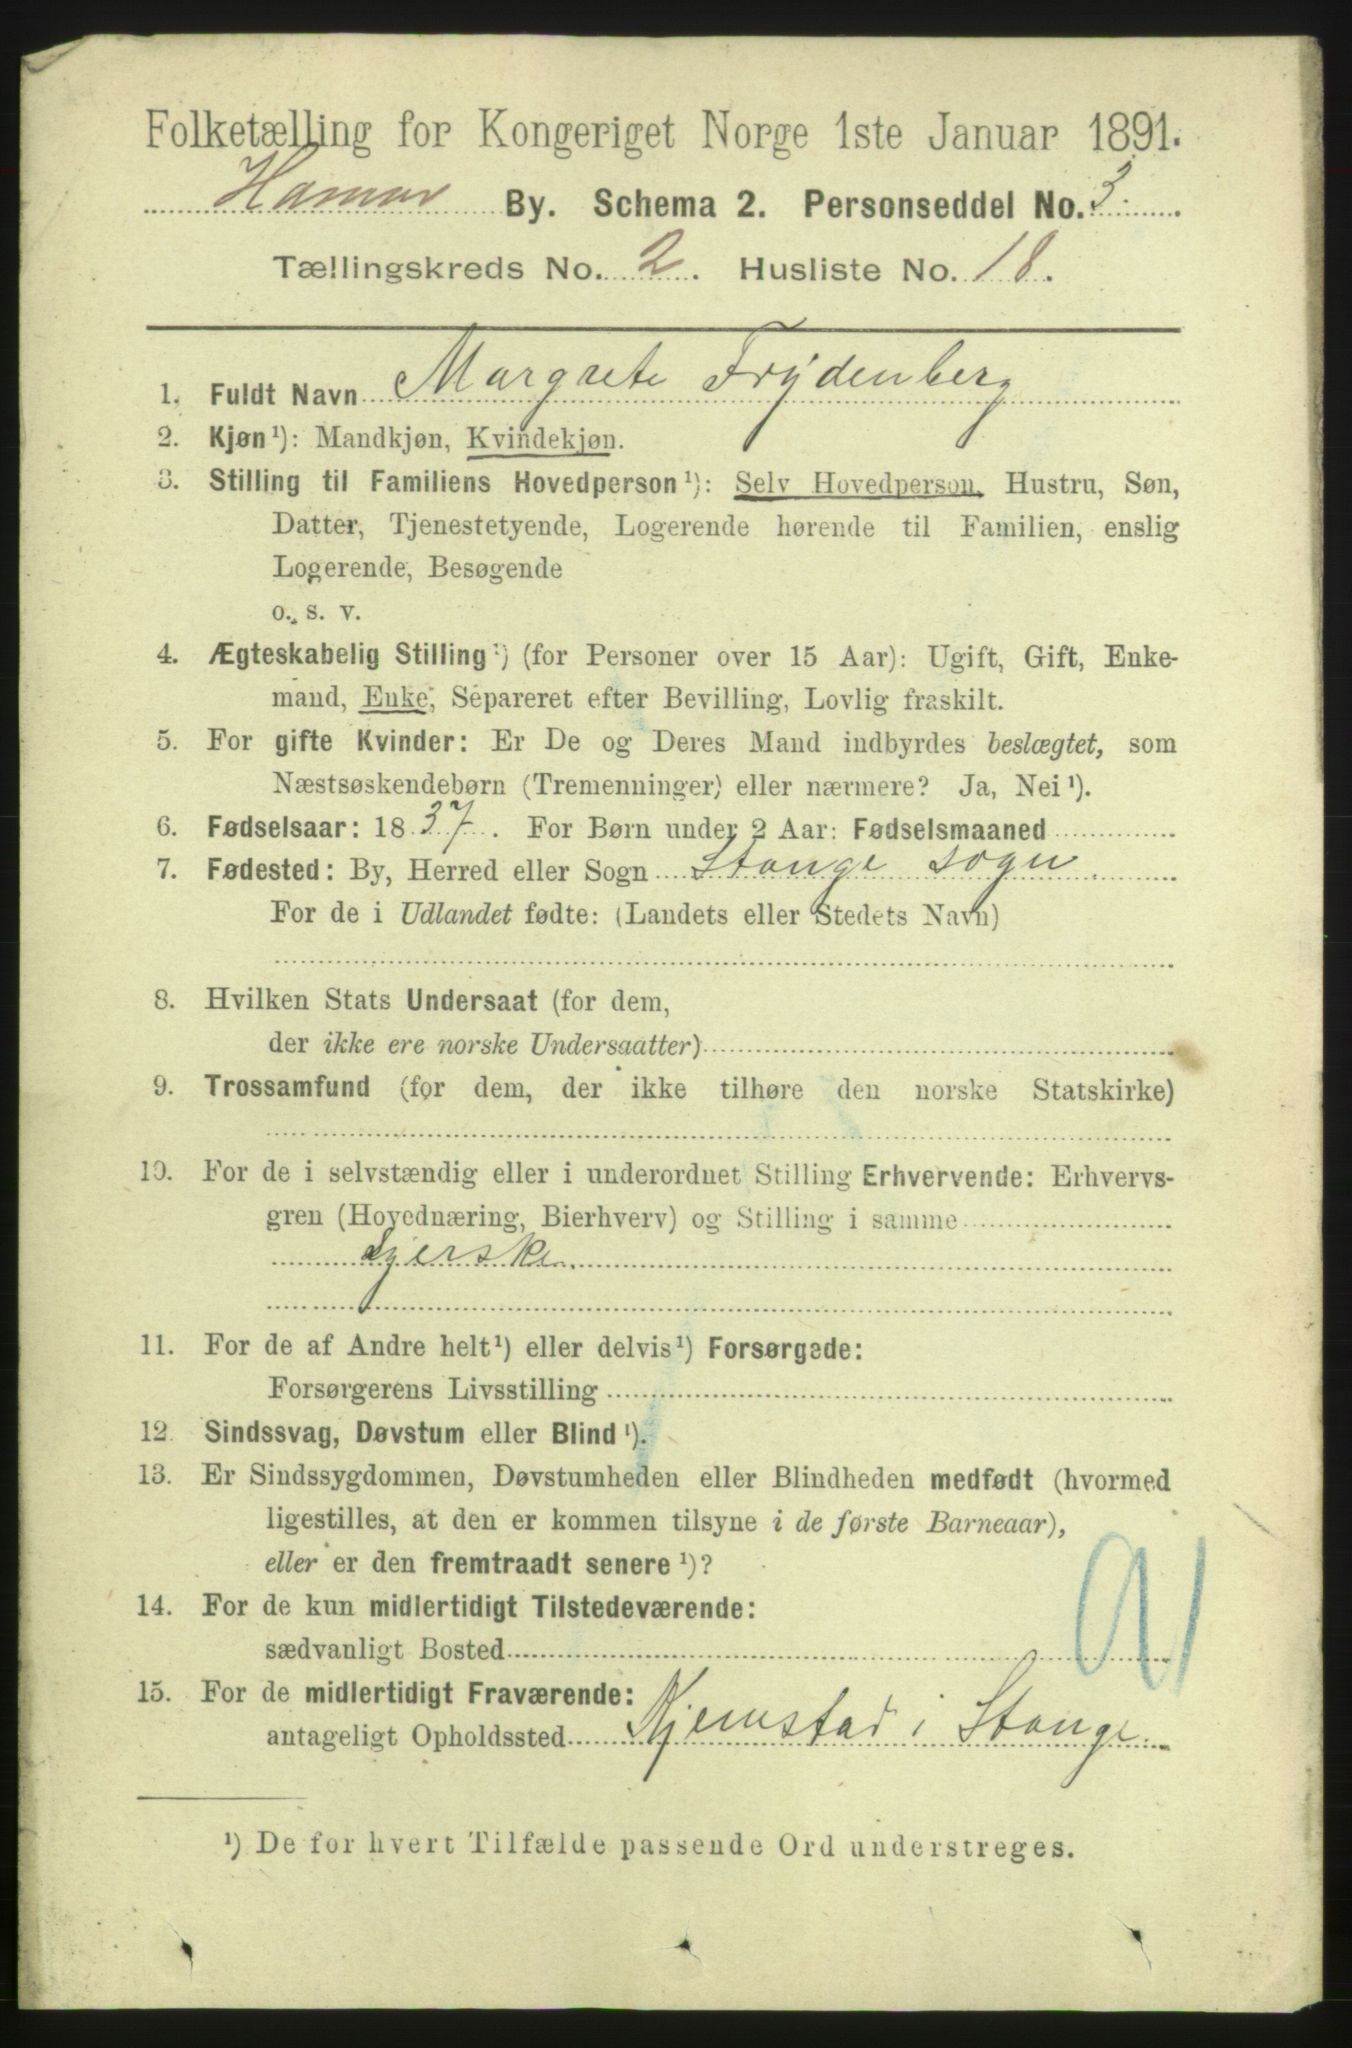 Folketælling for Kongeriget Norge 1ste Januar 1891.
Hamar By. Schema 2. Personseddel No. 3.
Tællingskreds No. 2. Husliste No. 18.
1. Fuldt Navn Margrete Frydenberg
2. Kjøn¹): Mandkjøn, Kvindekjøn.
3. Stilling til Familiens Hovedperson¹): Selv Hovedperson, Hustru, Søn,
Datter, Tjenestetyende, Logerende hørende til Familien, enslig
Logerende, Besøgende
o. s. v.
4. Ægteskabelig Stilling¹) (for Personer over 15 Aar): Ugift, Gift, Enke-
mand, Enke, Separeret efter Bevilling, Lovlig fraskilt.
5. For gifte Kvinder: Er De og Deres Mand indbyrdes beslægtet, som
Næstsøskendebørn (Tremenninger) eller nærmere? Ja, Nei¹).
6. Fødselsaar: 1837. For Børn under 2 Aar: Fødselsmaaned
7. Fødested: By, Herred eller Sogn Stange sogn.
For de i Udlandet fødte: (Landets eller Stedets Navn)
8. Hvilken Stats Undersaat (for dem,
der ikke ere norske Undersaatter)
9. Trossamfund (for dem, der ikke tilhøre den norske Statskirke)
10. For de i selvstændig eller i underordnet Stilling Erhvervende: Erhvervs-
gren (Hovednæring, Bierhverv) og Stilling i samme
Syerske
11. For de af Andre helt¹) eller delvis¹) Forsørgede:
Forsørgerens Livsstilling
12. Sindssvag, Døvstum eller Blind¹).
13. Er Sindssygdommen, Døvstumheden eller Blindheden medfødt (hvormed
ligestilles, at den er kommen tilsyne i de første Barneaar),
eller er den fremtraadt senere¹)?
14. For de kun midlertidigt Tilstedeværende:
sædvanligt Bosted
15. For de midlertidigt Fraværende:
antageligt Opholdssted Kjemstad i Stange.
¹) De for hvert Tilfælde passende Ord understreges.